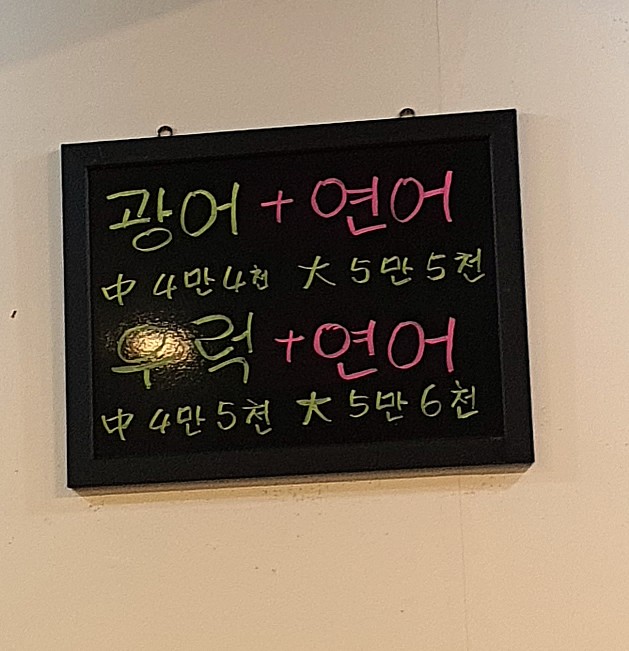 광어 + 연어
中 4만4천 大 5만 5천
우럭 + 연어
中 4만 5천 大 5만 6천